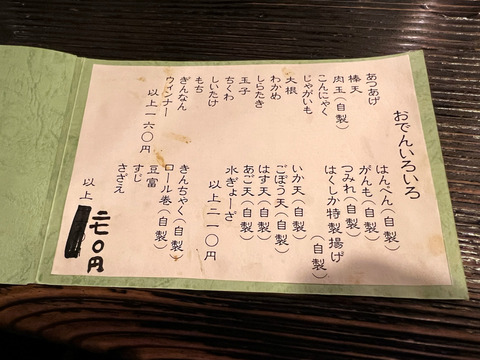 おでんいろいろ
あつあげ
棒天
肉玉(自製)
こんにゃく
じゃがいも
大根
わかめ
しらたき
玉子
ちくわ
しいたけ
もち
ぎんなん
ウィンナー
以上一六〇円
はんぺん(自製)
がんも(自製)
つみれ(自製)
はくしか特製揚げ(自製)
いか天(自製)
ごぼう天(自製)
はす天(自製)
あご天(自製)
水ぎょーざ
以上二一〇円
きんちゃく(自製)
ロール巻(自製)
豆富
すじ
さざえ
以上 二七〇円